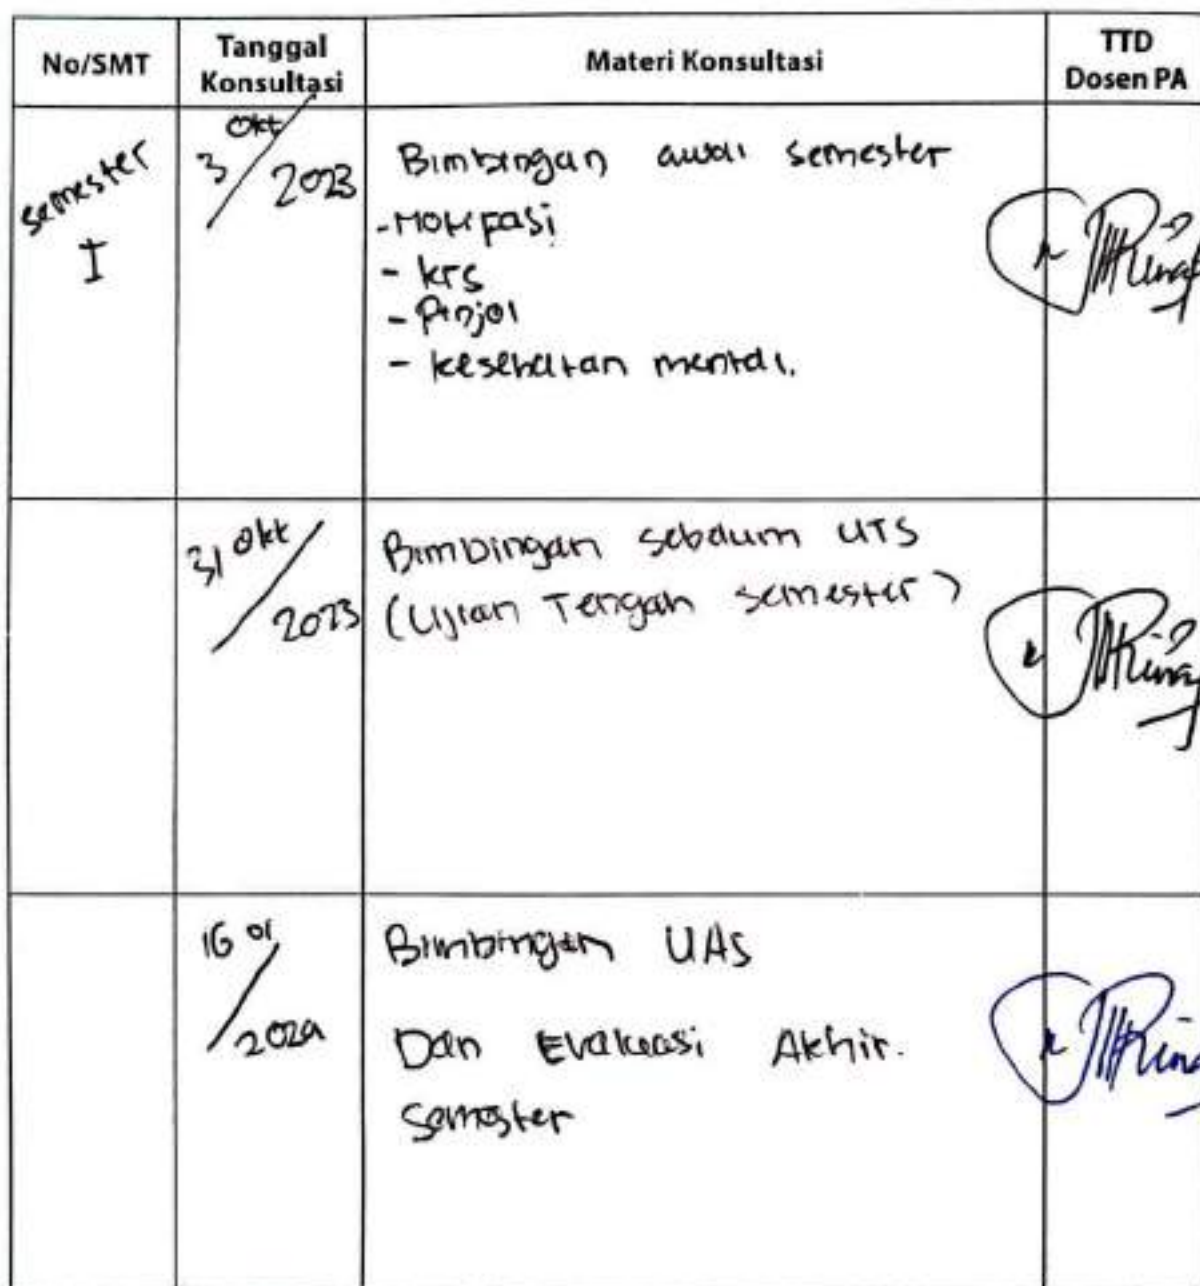 No/SMT
Tanggal
Konsultasi
Materi Konsultasi
TTD
Dosen PA
semester
I
3 Okt
2023
Bimbingan awal semester
- Motipasi
- krs
- Pinjol
- kesehatan mental.
31 Okt
2023
Bimbingan sebelum UTS
(Ujian Tengah semester)
16 01
2024
Bimbingan UAS
Dan Evaluasi Akhir.
Semester